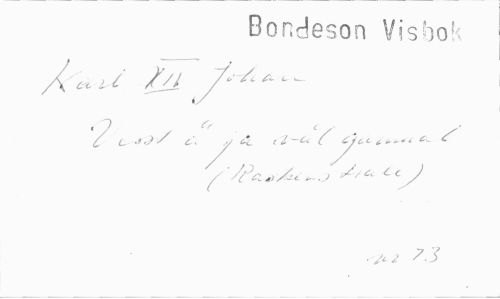 Bondeson Visbok
Karl XIV Johan
Visst ä' ja väl gammal
(Raskens tale)
nr 73